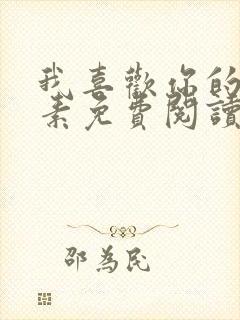 我喜歡你的
素免費閱讀
邵為民